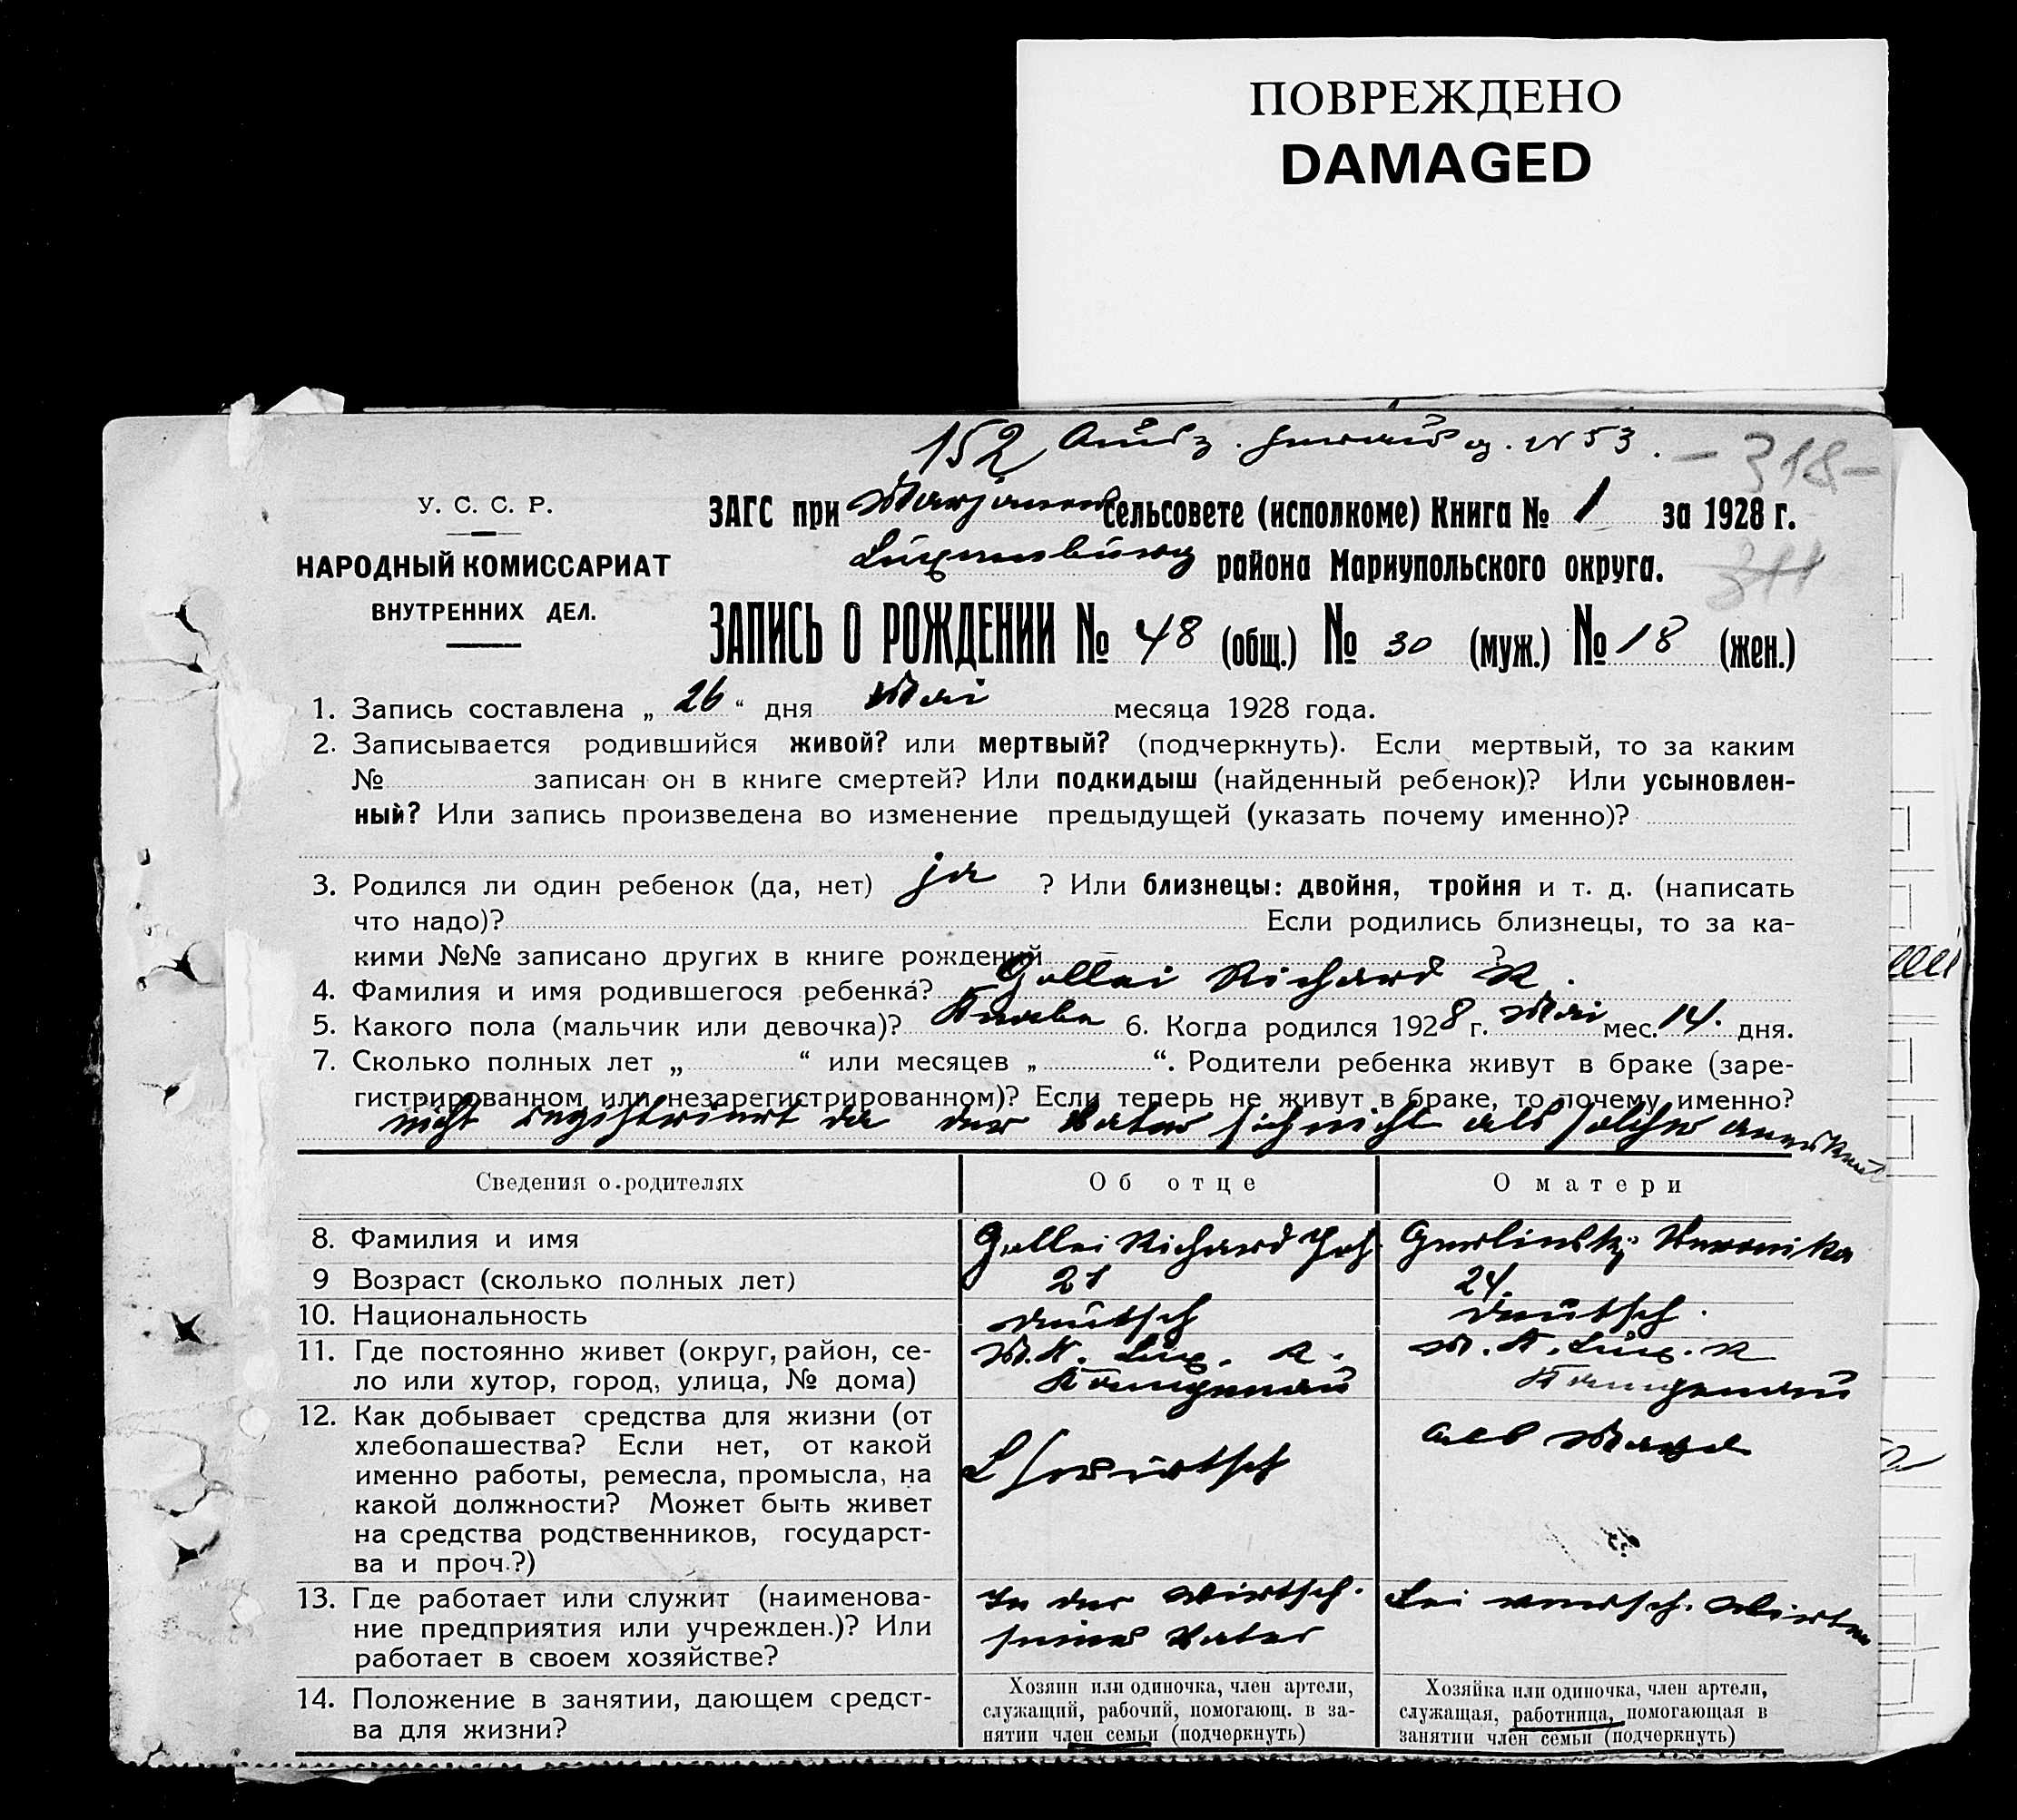 ПОВРЕЖДЕНО
DAMAGED
152 Ausz. herausg. N 53. - 318 -
У. С. С. Р.
ЗАГС при Marjanow сельсовете (исполкоме) Книга № 1 за 1928 г.
НАРОДНЫЙ КОМИССАРИАТ
Luxemburg района Мариупольского округа.
311
ВНУТРЕННИХ ДЕЛ.
ЗАПИСЬ О РОЖДЕНИИ № 48 (общ.) № 30 (муж.) № 18 (жен.)
1. Запись составлена „ 26 “ дня Mai месяца 1928 года.
2. Записывается родившийся живой? или мертвый? (подчеркнуть). Если мертвый, то за каким
№ записан он в книге смертей? Или подкидыш (найденный ребенок)? Или усыновлен-
ный? Или запись произведена во изменение предыдущей (указать почему именно)?
3. Родился ли один ребенок (да, нет) ja ? Или близнецы: двойня, тройня и т. д. (написать
что надо)? Если родились близнецы, то за ка-
кими №№ записано других в книге рождений — ?
4. Фамилия и имя родившегося ребенка? Gallei Richard R.
5. Какого пола (мальчик или девочка)? Knabe 6. Когда родился 1928 г. Mai мес. 14. дня.
7. Сколько полных лет „ “ или месяцев „ “. Родители ребенка живут в браке (заре-
гистрированном или незарегистрированном)? Если теперь не живут в браке, то почему именно?
nicht registriert da der Vater sich nicht als solcher anerkennt
Сведения о родителях Об отце О матери
8. Фамилия и имя Gallei Richard Joh. Gerlinsky Veronika
9 Возраст (сколько полных лет) 21 24.
10. Национальность deutsch deutsch.
11. Где постоянно живет (округ, район, се- M. K. Lux. R. M. K. Lux. R
ло или хутор, город, улица, № дома) Kampenau Kampenau
12. Как добывает средства для жизни (от als Magd
хлебопашества? Если нет, от какой
именно работы, ремесла, промысла, на
какой должности? Может быть живет
на средства родственников, государст-
ва и проч.?)
13. Где работает или служит (наименова- In der Wirtsch. bei versch. Wirten
ние предприятия или учрежден.)? Или seines Vater
работает в своем хозяйстве?
14. Положение в занятии, дающем средст-
ва для жизни?
Хозяин или одиночка, член артели,
служащий, рабочий, помогающ. в за-
нятии член семьи (подчеркнуть)
Хозяйка или одиночка, член артели,
служащая, работница, помогающая в
занятии член семьи (подчеркнуть)